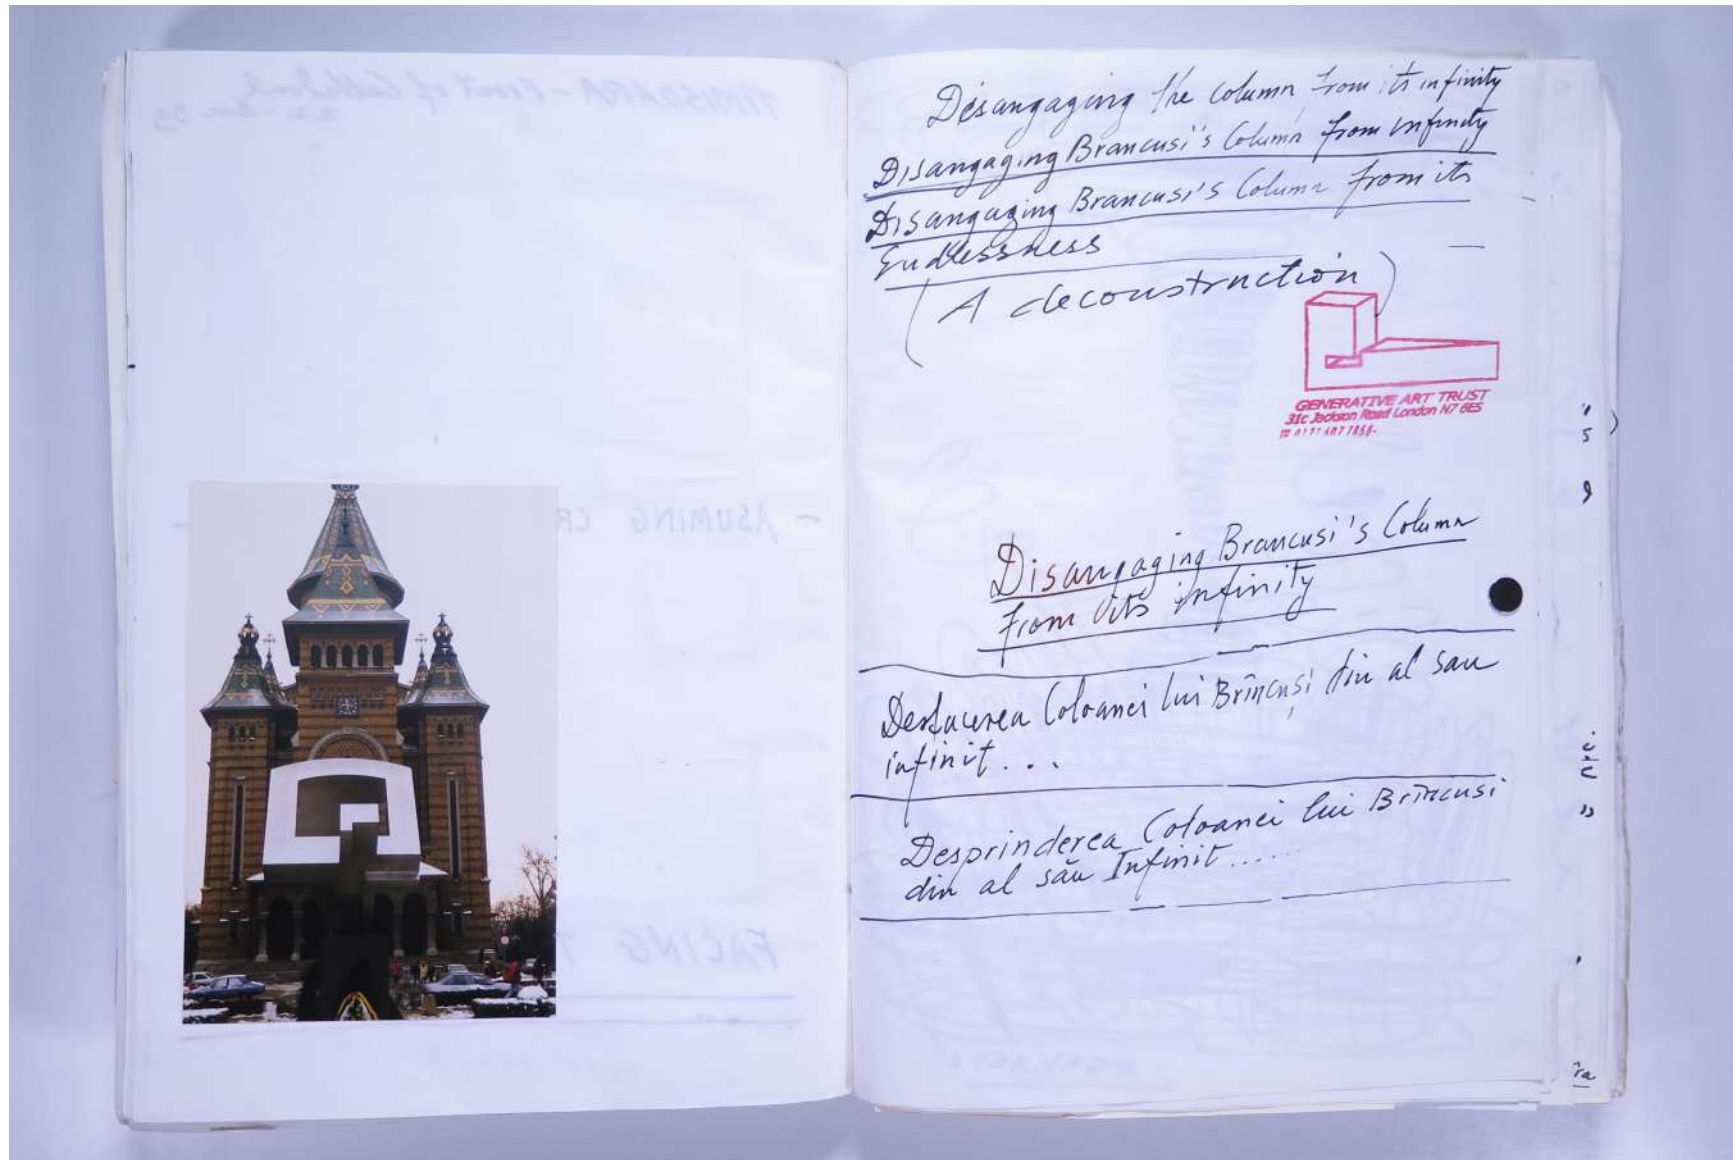 Disangaging the column from its infinity
Disangaging Brancusi's Column from infinity
Disangaging Brancusi's Column from its
Endlessness
(A deconstruction)
GENERATIVE ART TRUST
31c Jackson Road London N7 6ES
Disangaging Brancusi's Column
from its infinity
Desfacerea Coloanei lui Brîncuși din al sau
infinit...
Desprinderea Coloanei lui Brîncusi
din al său Infinit.....